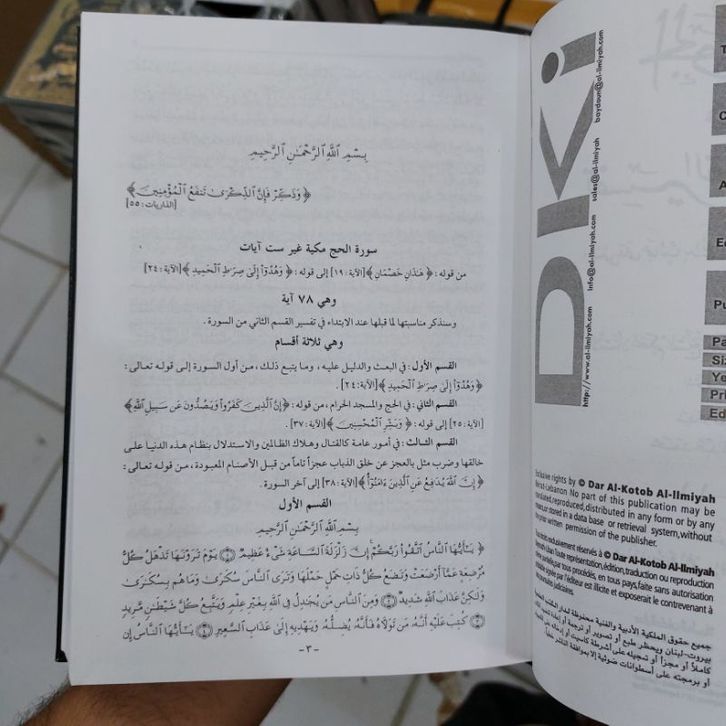 بِسْمِ اللَّهِ الرَّحْمَٰنِ الرَّحِيمِ
﴿ وَذَكِّرْ فَإِنَّ الذِّكْرَىٰ تَنفَعُ الْمُؤْمِنِينَ ﴾
[الذاريات: ٥٥]
سورة الحج مكية غير ست آيات
من قوله: ﴿ هَٰذَانِ خَصْمَانِ ﴾[الآية: ١٩] إلى قوله: ﴿ وَهُدُوٓا۟ إِلَىٰ صِرَٰطِ الْحَمِيدِ ﴾[الآية: ٢٤]
وهي ٧٨ آية
وسنذكر مناسبتها لما قبلها عند الابتداء في تفسير القسم الثاني من السورة .
وهي ثلاثة أقسام
القسم الأول: في البعث والدليل عليه ، وما يتبع ذلك ، من أول السورة إلى قوله تعالى:
﴿ وَهُدُوٓا۟ إِلَىٰ صِرَٰطِ الْحَمِيدِ ﴾[الآية: ٢٤] .
القسم الثاني: في الحج والمسجد الحرام ، من قوله: ﴿إِنَّ الَّذِينَ كَفَرُوا وَيَصُدُّونَ عَن سَبِيلِ اللَّهِ﴾
[الآية: ٢٥] إلى قوله: ﴿ وَبَشِّرِ الْمُحْسِنِينَ ﴾[الآية: ٣٧].
القسم الثالث: في أمور عامة كالقتال وهلاك الظالمين والاستدلال بنظام هذه الدنيا على
خالقها وضرب مثل بالعجز عن خلق الذباب عجزاً تاماً من قبل الأصنام المعبودة ، من قوله تعالى:
﴿ إِنَّ اللَّهَ يُدَٰفِعُ عَنِ الَّذِينَ ءَامَنُوٓا۟ ﴾[الآية: ٣٨] إلى آخر السورة.
القسم الأول
بِسْمِ اللَّهِ الرَّحْمَٰنِ الرَّحِيمِ
﴿ يَٰٓأَيُّهَا النَّاسُ اتَّقُوا۟ رَبَّكُمْ إِنَّ زَلْزَلَةَ السَّاعَةِ شَىْءٌ عَظِيمٌ ۝ يَوْمَ تَرَوْنَهَا تَذْهَلُ كُلُّ
مُرْضِعَةٍ عَمَّآ أَرْضَعَتْ وَتَضَعُ كُلُّ ذَاتِ حَمْلٍ حَمْلَهَا وَتَرَى النَّاسَ سُكَٰرَىٰ وَمَا هُم بِسُكَٰرَىٰ
وَلَٰكِنَّ عَذَابَ اللَّهِ شَدِيدٌ ۝ وَمِنَ النَّاسِ مَن يُجَٰدِلُ فِى اللَّهِ بِغَيْرِ عِلْمٍ وَيَتَّبِعُ كُلَّ شَيْطَٰنٍ مَّرِيدٍ
۝ كُتِبَ عَلَيْهِ أَنَّهُ مَن تَوَلَّاهُ فَأَنَّهُ يُضِلُّهُ وَيَهْدِيهِ إِلَىٰ عَذَابِ السَّعِيرِ ۝ يَٰٓأَيُّهَا النَّاسُ إِن
- ٣ -
DKi
http://www.al-ilmiyah.com
info@al-ilmiyah.com
sales@al-ilmiyah.com
baydoun@al-ilmiyah.com
Exclusive rights by © Dar Al-Kotob Al-Ilmiyah
Beirut-Lebanon No part of this publication may be
translated, reproduced, distributed in any form or by any
means, or stored in a data base or retrieval system, without
the prior written permission of the publisher.
Tous droits exclusivement réservés à © Dar Al-Kotob Al-Ilmiyah
Beyrouth-Liban Toute représentation, édition, traduction ou reproduction
même partielle, par tous procédés, en tous pays, faite sans autorisation
préalable signée par l'éditeur est illicite et exposerait le contrevenant à
des poursuites judiciaires.
جميع حقوق الملكية الأدبية والفنية محفوظة لدار الكتب العلمية
بيروت-لبنان ويحظر طبع أو تصوير أو ترجمة أو إعادة
كاملاً أو مجزأ أو تسجيله على أشرطة كاسيت أو إدخاله على
أو برمجته على أسطوانات ضوئية إلا بموافقة الناشر خطياً